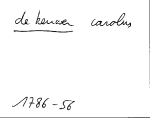 de keuzer carolus
1786-56